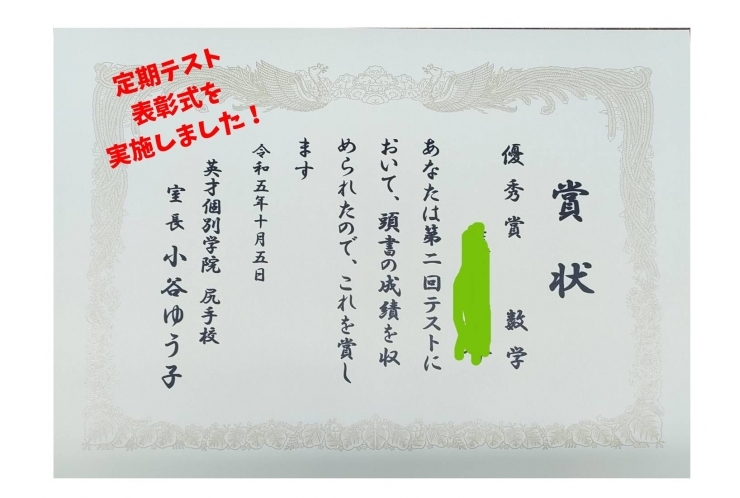 定期テスト
表彰式を
実施しました！
賞状
優秀賞 数学
あなたは第二回テストに
おいて、頭書の成績を収
められたので、これを賞し
ます
令和五年十月五日
英才個別学院 尻手校
室長 小谷ゆう子